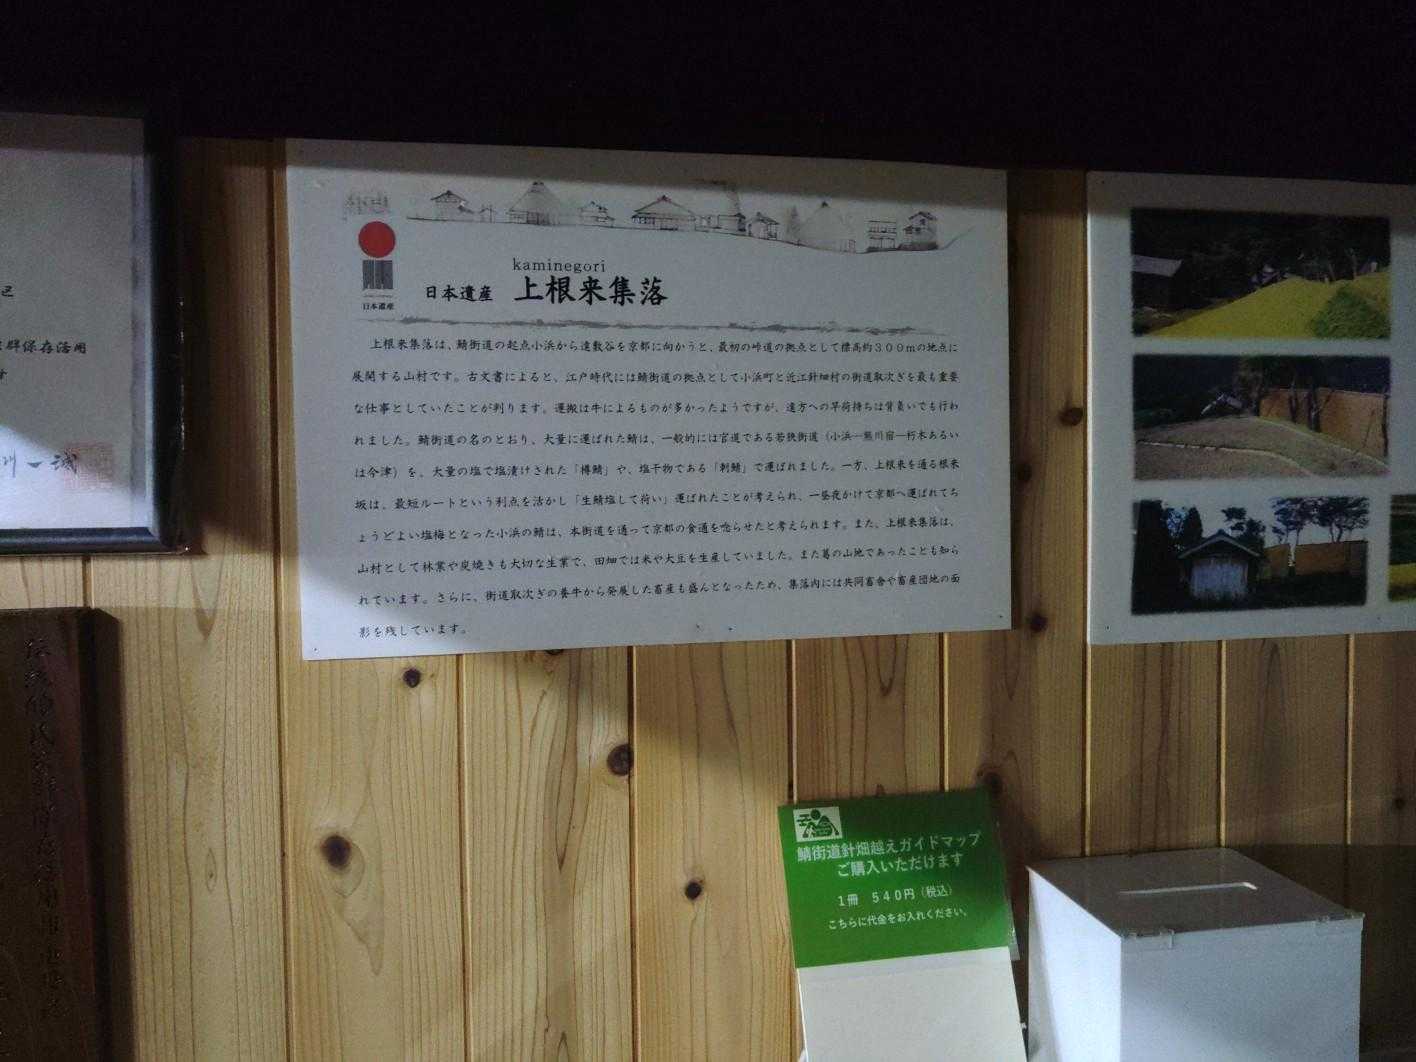 己
群保存活用
川一誠
日本遺産
kaminegori
日本遺産 上根来集落
上根来集落は、鯖街道の起点小浜から遠敷谷を京都に向かうと、最初の峠道の拠点として標高約300mの地点に
展開する山村です。古文書によると、江戸時代には鯖街道の拠点として小浜町と近江針畑村の街道取次ぎを最も重要
な仕事としていたことが判ります。運搬は牛によるものが多かったようですが、遠方への早荷持ちは背負いでも行わ
れました。鯖街道の名のとおり、大量に運ばれた鯖は、一般的には官道である若狭街道（小浜―熊川宿―朽木あるい
は今津）を、大量の塩で塩漬けされた「樽鯖」や、塩干物である「刺鯖」で運ばれました。一方、上根来を通る根来
坂は、最短ルートという利点を活かし「生鯖塩して荷い」運ばれたことが考えられ、一昼夜かけて京都へ運ばれてち
ょうどよい塩梅となった小浜の鯖は、本街道を通って京都の食通を唸らせたと考えられます。また、上根来集落は、
山村として林業や炭焼きも大切な生業で、田畑では米や大豆を生産していました。また葛の山地であったことも知ら
れています。さらに、街道取次ぎの養牛から発展した畜産も盛んとなったため、集落内には共同畜舎や畜産団地の面
影を残しています。
鯖街道針畑越えガイドマップ
ご購入いただけます
1冊 540円（税込）
こちらに代金をお入れください。